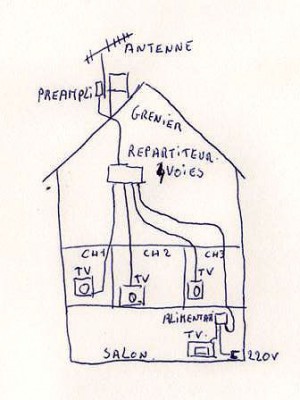 ANTENNE
PREAMPLI
GRENIER
REPARTITEUR
4 VOIES
CH1
CH2
CH3
TV
TV
TV
ALIMENTAT
TV
SALON
220V